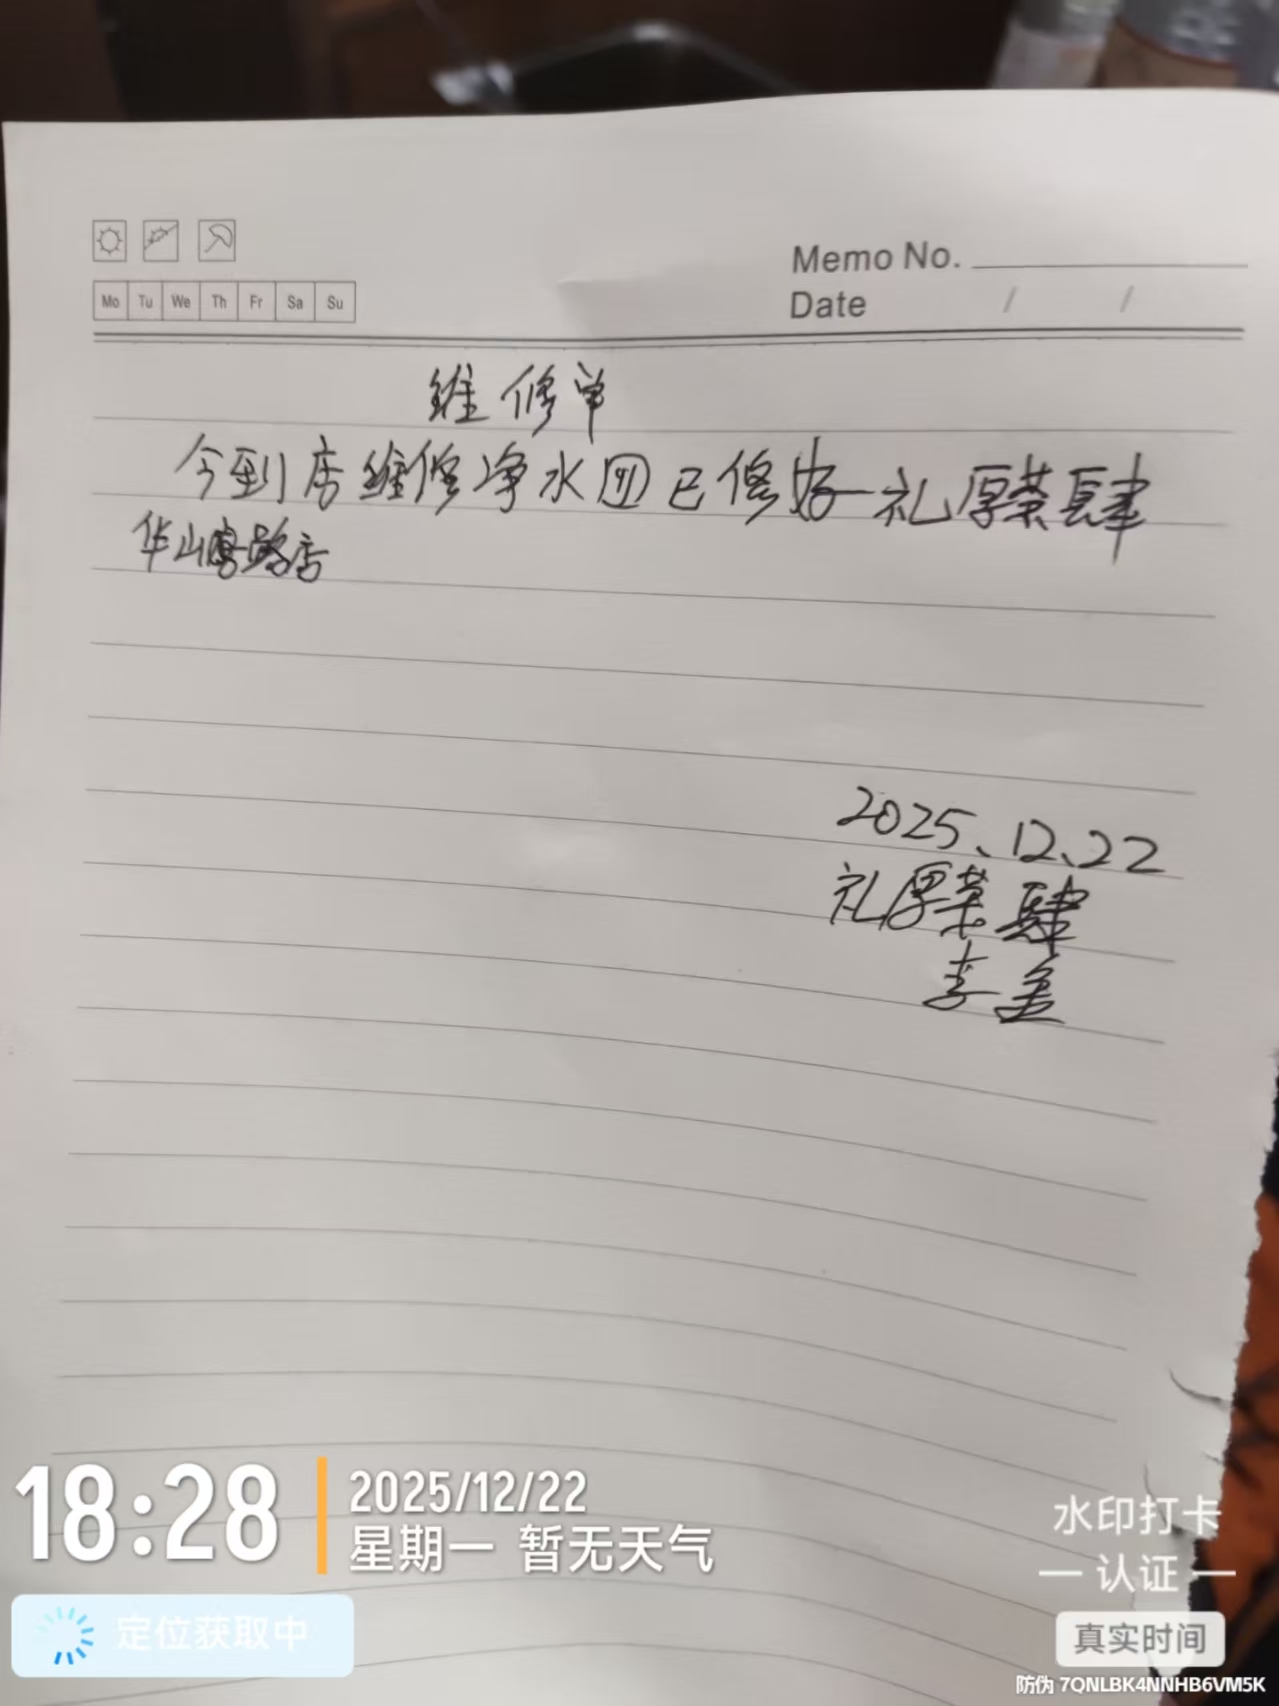 Memo No.
Date / /
Mo Tu We Th Fr Sa Su
维修单
今到店维修净水四已修好 礼厚茶肆
华山路店
2025、12、22
礼厚茶肆
李
18:28
2025/12/22
星期一 暂无天气
定位获取中
水印打卡
认证
真实时间
防伪 7QNLBK4NNHB6VM5K